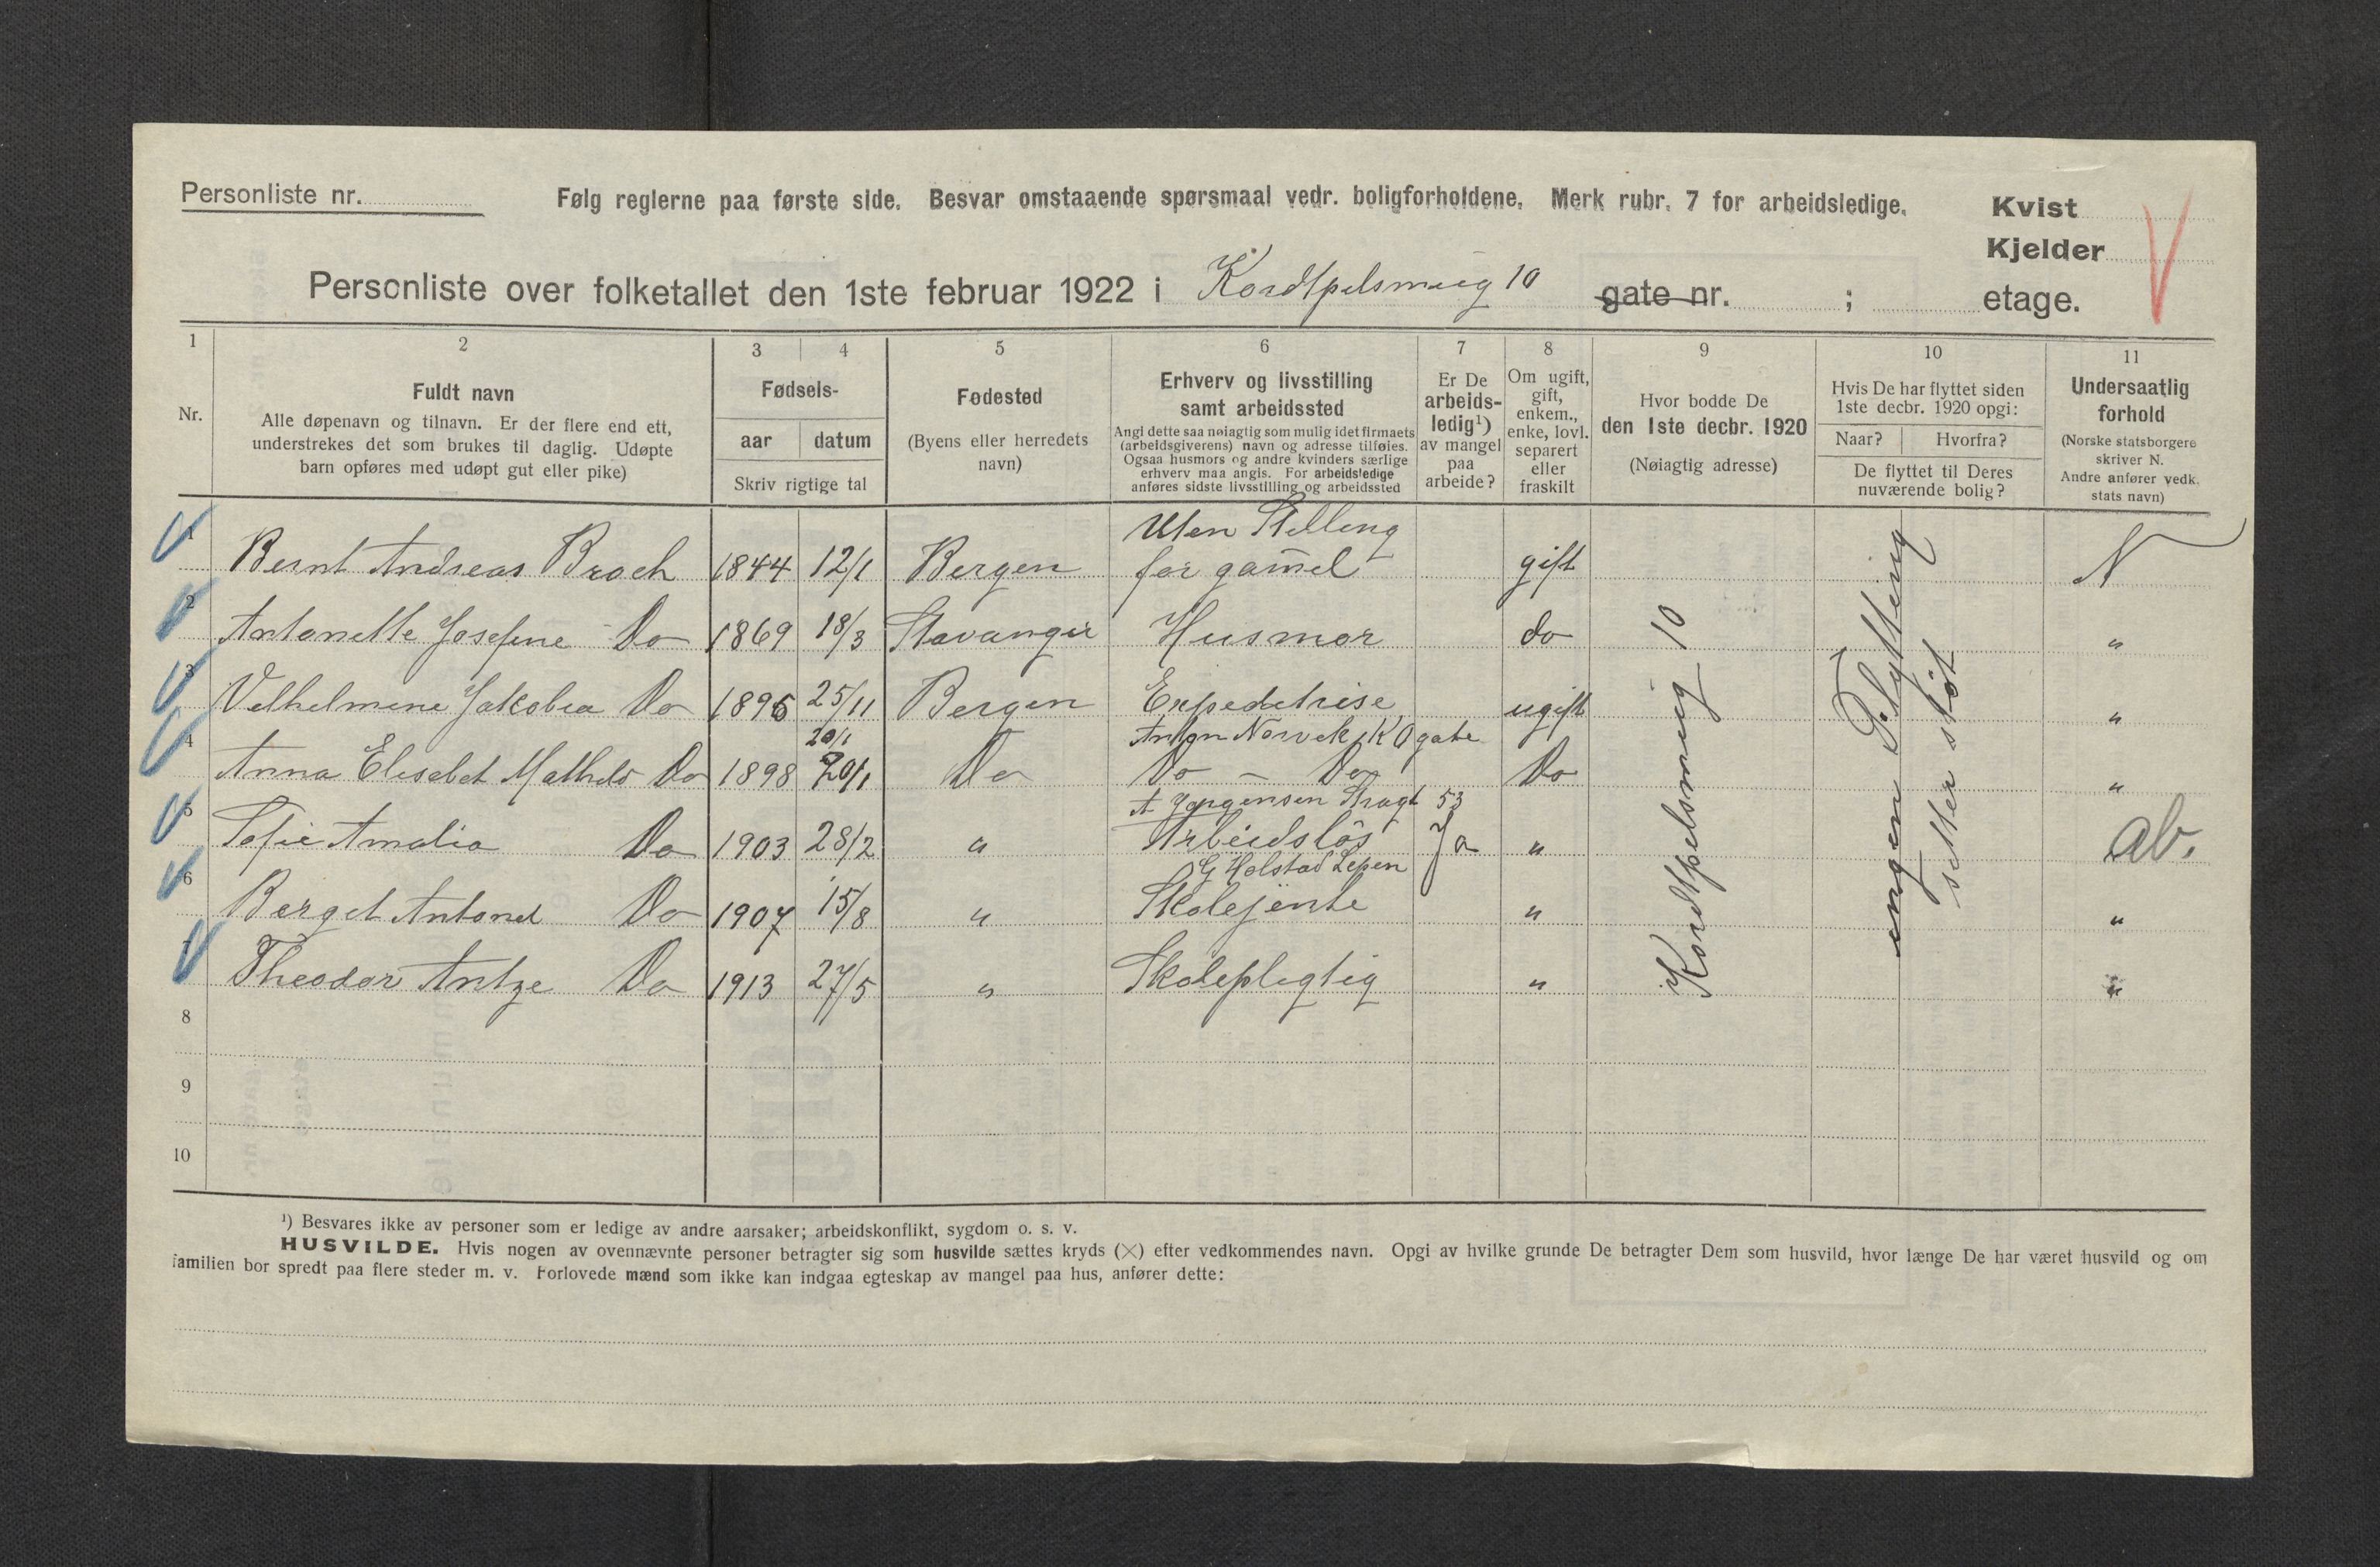 Personliste nr.
Følg reglerne paa første side. Besvar omstaaende spørsmaal vedr. boligforholdene. Merk rubr. 7 for arbeidsledige.
Kvist
Kjelder
etage.
Personliste over folketallet den 1ste februar 1922 i 10 gate nr. ;
1 2 3 4 5 6 7 8 9 10 11
Nr.
Fuldt navn
Alle døpenavn og tilnavn. Er der flere end ett,
understrekes det som brukes til daglig. Udøpte
barn opføres med udøpt gut eller pike)
Fødsels-
aar datum
Skriv rigtige tal
Fødested
(Byens eller herredets
navn)
Erhverv og livsstilling
samt arbeidssted
Angi dette saa nøiagtig som mulig idet firmaets
(arbeidsgiverens) navn og adresse tilføies.
Ogsaa husmors og andre kvinders særlige
erhverv maa angis. For arbeidsledige
anføres sidste livsstilling og arbeidssted
Er De
arbeids-
ledig¹)
av mangel
paa
arbeide?
Om ugift,
gift,
enkem.,
enke, lovl.
separert
eller
fraskilt
Hvor bodde De
den 1ste decbr. 1920
(Nøiagtig adresse)
Hvis De har flyttet siden
1ste decbr. 1920 opgi:
Naar? Hvorfra?
De flyttet til Deres
nuværende bolig?
Undersaatlig
forhold
(Norske statsborgere
skriver N.
Andre anfører vedk.
stats navn)
Uten Stilling
1 Bernt Andreas Broch 1844 12/1 Bergen for gam̄el gift N
2 Antonette Josefine Do 1869 18/3 Stavanger Husmor do "
3 Vilhelmine Jakobea Do 1896 25/11 Bergen Expeditrise ugift "
20/1 Anton Norvek K O gate
4 Anna Elisabet Mathild Do 1898 20/1 Do Do - Do Do "
A Jørgensen Stragt 53
5 Sofie Amalia Do 1903 28/2 " Arbeidsløs Ja " ab.
G Holstad
6 Berget Antonel Do 1907 15/8 " Skolejente " "
7 Theodor Antze Do 1913 27/5 " Skolepligtig " "
10
ingen Flytting
8
9
10
¹) Besvares ikke av personer som er ledige av andre aarsaker; arbeidskonflikt, sygdom o. s. v.
HUSVILDE. Hvis nogen av ovennævnte personer betragter sig som husvilde sættes kryds (×) efter vedkommendes navn. Opgi av hvilke grunde De betragter Dem som husvild, hvor længe De har været husvild og om
familien bor spredt paa flere steder m. v. Forlovede mænd som ikke kan indgaa egteskap av mangel paa hus, anfører dette: